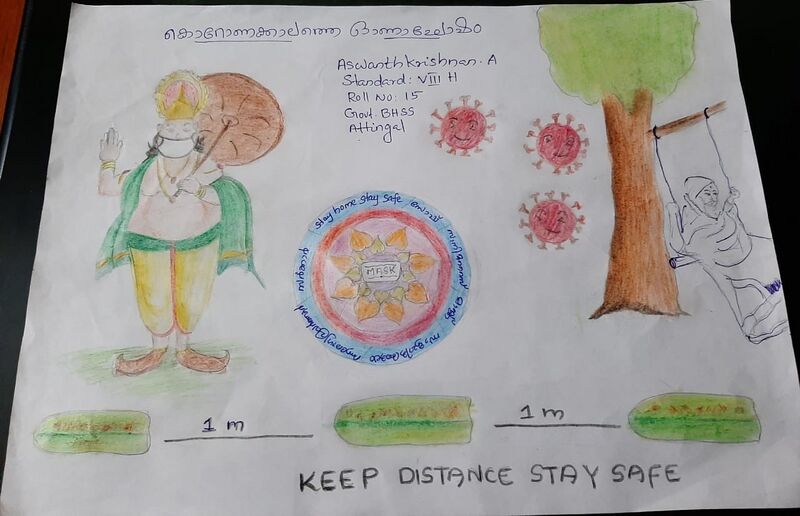 കൊറോണക്കാലത്തെ ഓണാഘോഷം
Aswanthkrishnan. A
Standard: VIII H
Roll No: 15
Govt. BHSS
Attingal
stay home stay safe
സോപ്പ്
സാനിറ്റൈസർ
മാസ്ക്
MASK
1 m
1 m
KEEP DISTANCE STAY SAFE